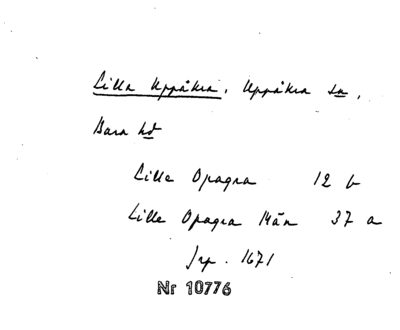 Lilla Uppåkra, Uppåkra sn,
Bara hd
Lille Opagra 12 b
Lille Opagra Mån 37 a
Jrp. 1671
Nr 10776